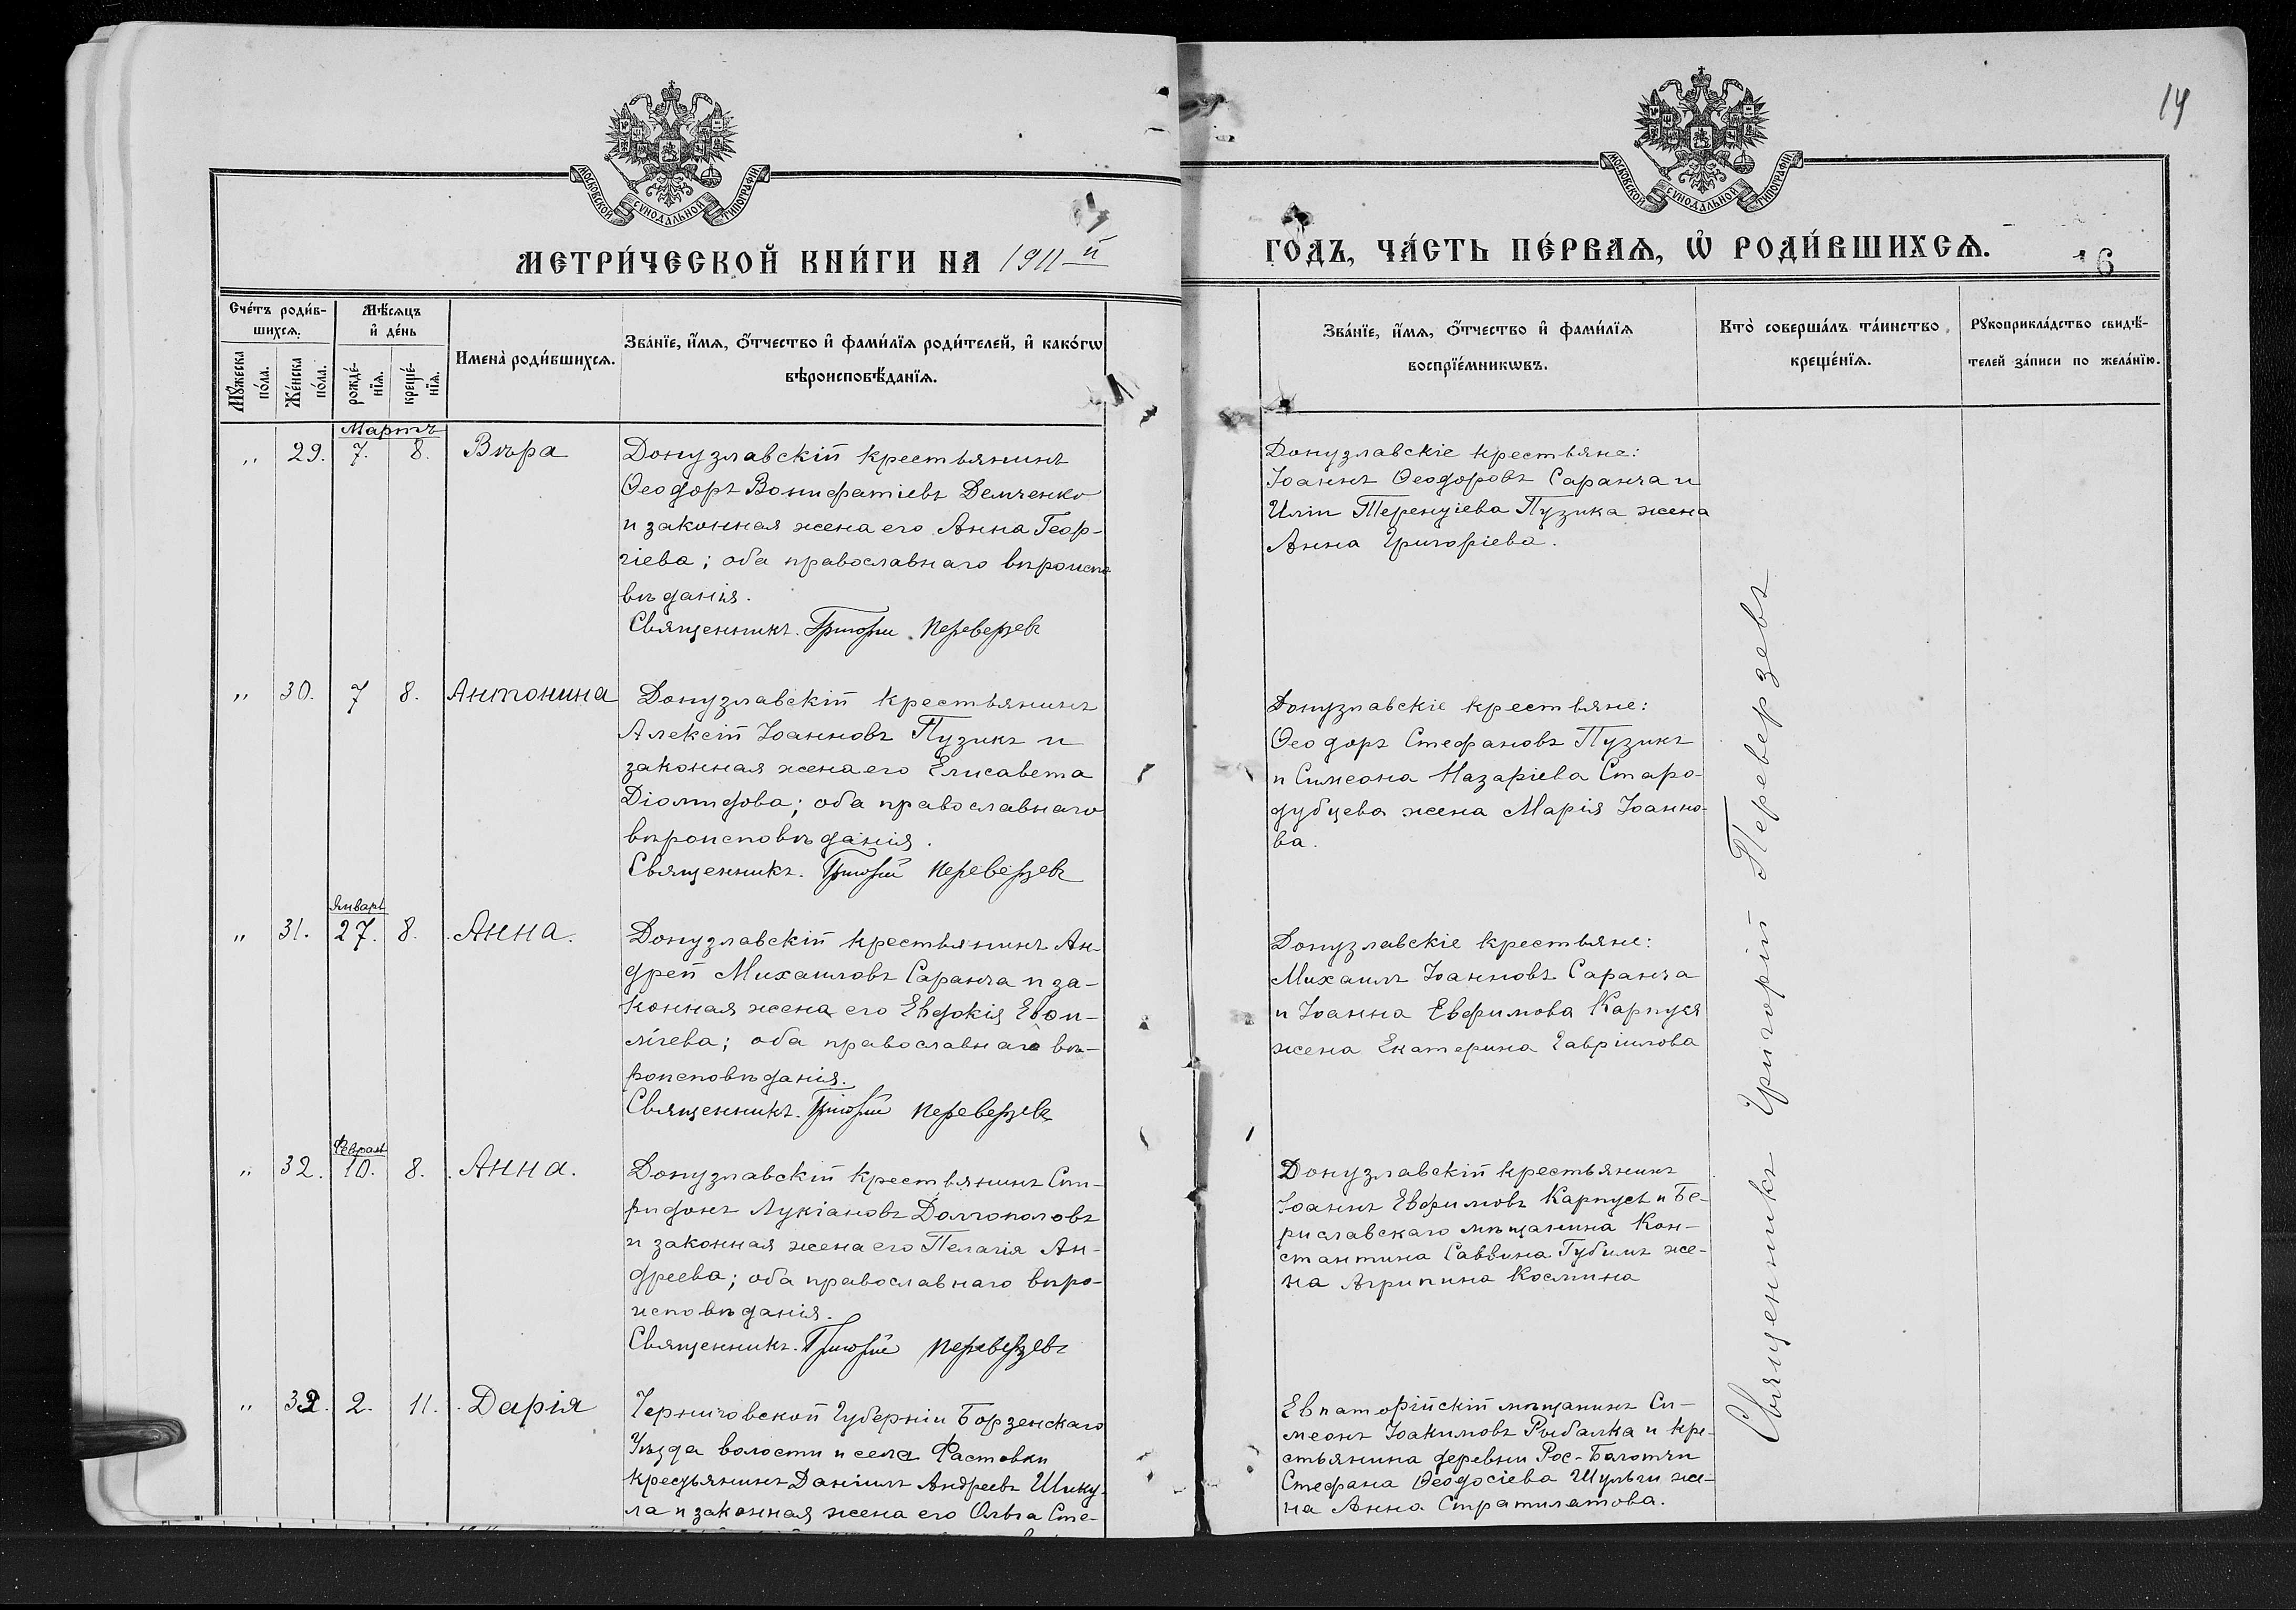 14
МОСКОВСКОЙ СѴНОДАЛЬНОЙ ТИПОГРАФІИ
МОСКОВСКОЙ СѴНОДАЛЬНОЙ ТИПОГРАФІИ
МЕТРИ́ЧЕСКОЙ КНИ́ГИ НА 1911 й
ГОДЪ, ЧА́СТЬ ПЕ́РВАѦ, Ѡ РОДИ́ВШИХСѦ.
16
Сче́тъ роди́в-
шихсѧ.
Мѣ́сѧцъ
и҆ де́нь
Мꙋ́жеска
по́ла.
Же́нска
по́ла.
рожде́-
нїѧ.
креще́-
нїѧ.
Имена̀ роди́вшихсѧ.
Зва́нїе, и҆́мѧ, ѻ҆́тчество и҆ фами́лїѧ роди́телей, и҆ како́гѡ
вѣроисповѣ́данїѧ.
Зва́нїе, и҆́мѧ, ѻ҆́тчество и҆ фами́лїѧ
воспрїе́мникѡвъ.
Кто̀ соверша́лъ та́инство
креще́нїѧ.
Рꙋкоприкла́дство свидѣ́-
телей за́писи по жела́нїю.
Мартъ
„ 29. 7. 8. Вѣра
Донузлавскій крестьянинъ
Ѳеодоръ Вонифатіевъ Демченко
и законная жена его Анна Геор-
гіева; оба православнаго вѣроиспо
вѣданія.
Священникъ. Григорій Переверзевъ
Донузлавскіе крестьяне:
Іоаннъ Ѳеодоровъ Саранча и
Иліи Терентіева Пузика жена
Анна Григоріева.
„ 30. 7 8. Антонина
Донузлавскій крестьянинъ
Алексій Іоанновъ Пузикъ и
законная жена его Елисавета
Діомидова; оба православнаго
вѣроисповѣданія.
Священникъ. Григорій Переверзевъ
Донузлавскіе крестьяне:
Ѳеодоръ Стефановъ Пузикъ
и Симеона Назаріева Старо-
дубцева жена Марія Іоанно-
ва.
Январь
„ 31. 27. 8. Анна.
Донузлавскій крестьянинъ Ан-
дрей Михаиловъ Саранча и за-
конная жена его Евдокія
оба православнаго вѣ-
роисповѣданія.
Священникъ. Григорій Переверзевъ
Донузлавскіе крестьяне:
Михаилъ Іоанновъ Саранча
и Іоанна Евфимова Карпуся
жена Екатерина Гавріилова
Феврал
„ 32. 10. 8. Анна.
Донузлавскій крестьянинъ Спи-
ридонъ Лукіановъ Долгополовъ
и законная жена его Пелагія Ан-
дреева; оба православнаго вѣро-
исповѣданія.
Священникъ. Григорій Переверзевъ
Донузлавскій крестьянинъ
Іоаннъ Евфимовъ Карпусь и Бе-
риславскаго мѣщанина Кон-
стантина Саввина Губимъ же-
на Агрипина Космина
„ 33. 2. 11. Дарія
Черниговской Губерніи Борзенскаго
Уѣзда волости и села Фастовки
крестьянинъ Даніилъ Андреевъ Шику-
ла и законная жена его Ольга Сте-
Евпаторійскій мѣщанинъ Си-
меонъ Іоакимовъ Рыбалка и кре-
стьянина деревни Рос-Боготчи
Стефана Ѳеодосіева Шульги же-
на Анна Стратилатова.
Священникъ Григорій Переверзевъ